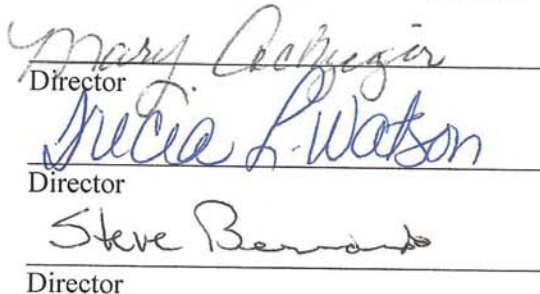 Mary
Director
Tricia L. Watson
Director
Steve
Director